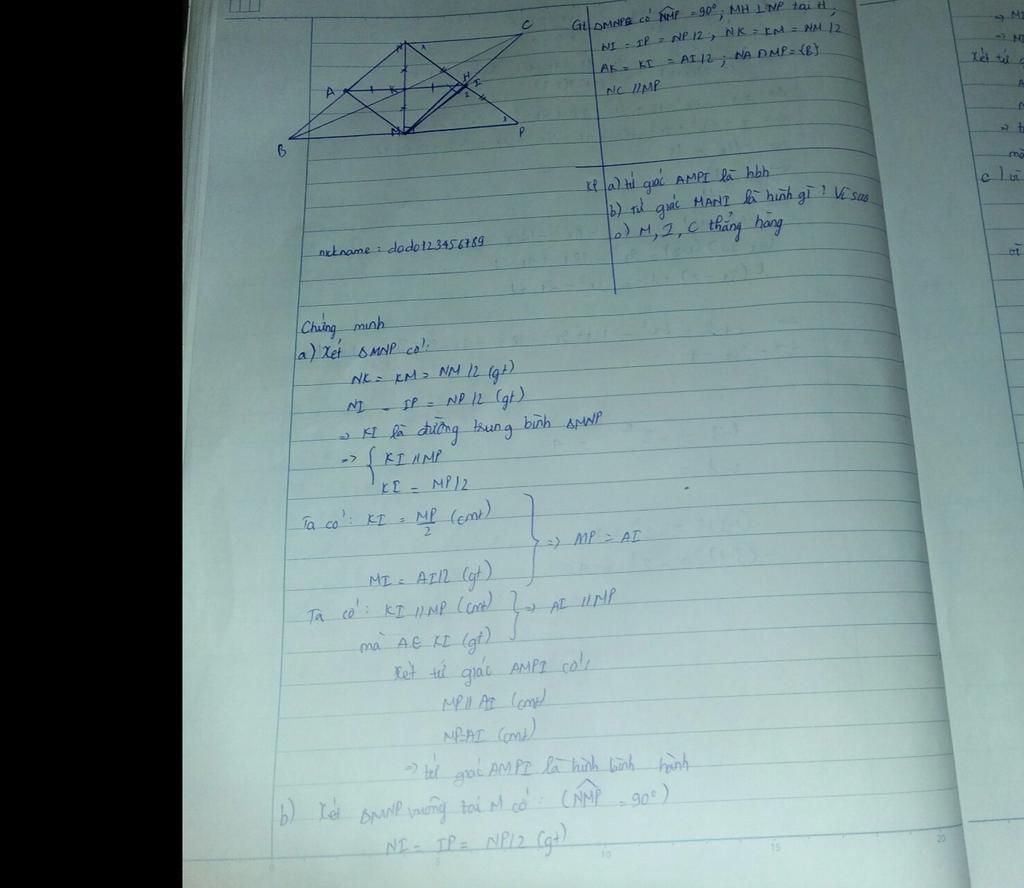 C
N
A
K
H
I
2
M
P
B
Gt ΔMNP có NMP = 90°; MH ⊥ NP tại H,
NI = IP = NP/2, NK = KM = NM/2
AK = KI = AI/2; NA ∩ MP = {B}
NC // MP
Kl a) tứ giác AMPI là hbh
b) Tứ giác MANI là hình gì? Vì sao
c) M, I, C thẳng hàng
nickname: dodo123456789
Chứng minh
a) Xét ΔMNP có:
NK = KM = NM/2 (gt)
NI = IP = NP/2 (gt)
=> KI là đường trung bình ΔMNP
=> { KI // MP
KI = MP/2
Ta có: KI = MP/2 (cmt)
=> MP = AI
MI = AI/2 (gt)
Ta có: KI // MP (cmt) } => AI // MP
mà A ∈ KI (gt)
Xét tứ giác AMPI có:
MP // AI (cmt)
NP=AI (cmt)
=> tứ giác AMPI là hình bình hành
b) Xét ΔMNP vuông tại M có: (NMP = 90°)
NI = IP = NP/2 (gt)
=> M
Xét tứ
c) vì
vì
5
10
15
20